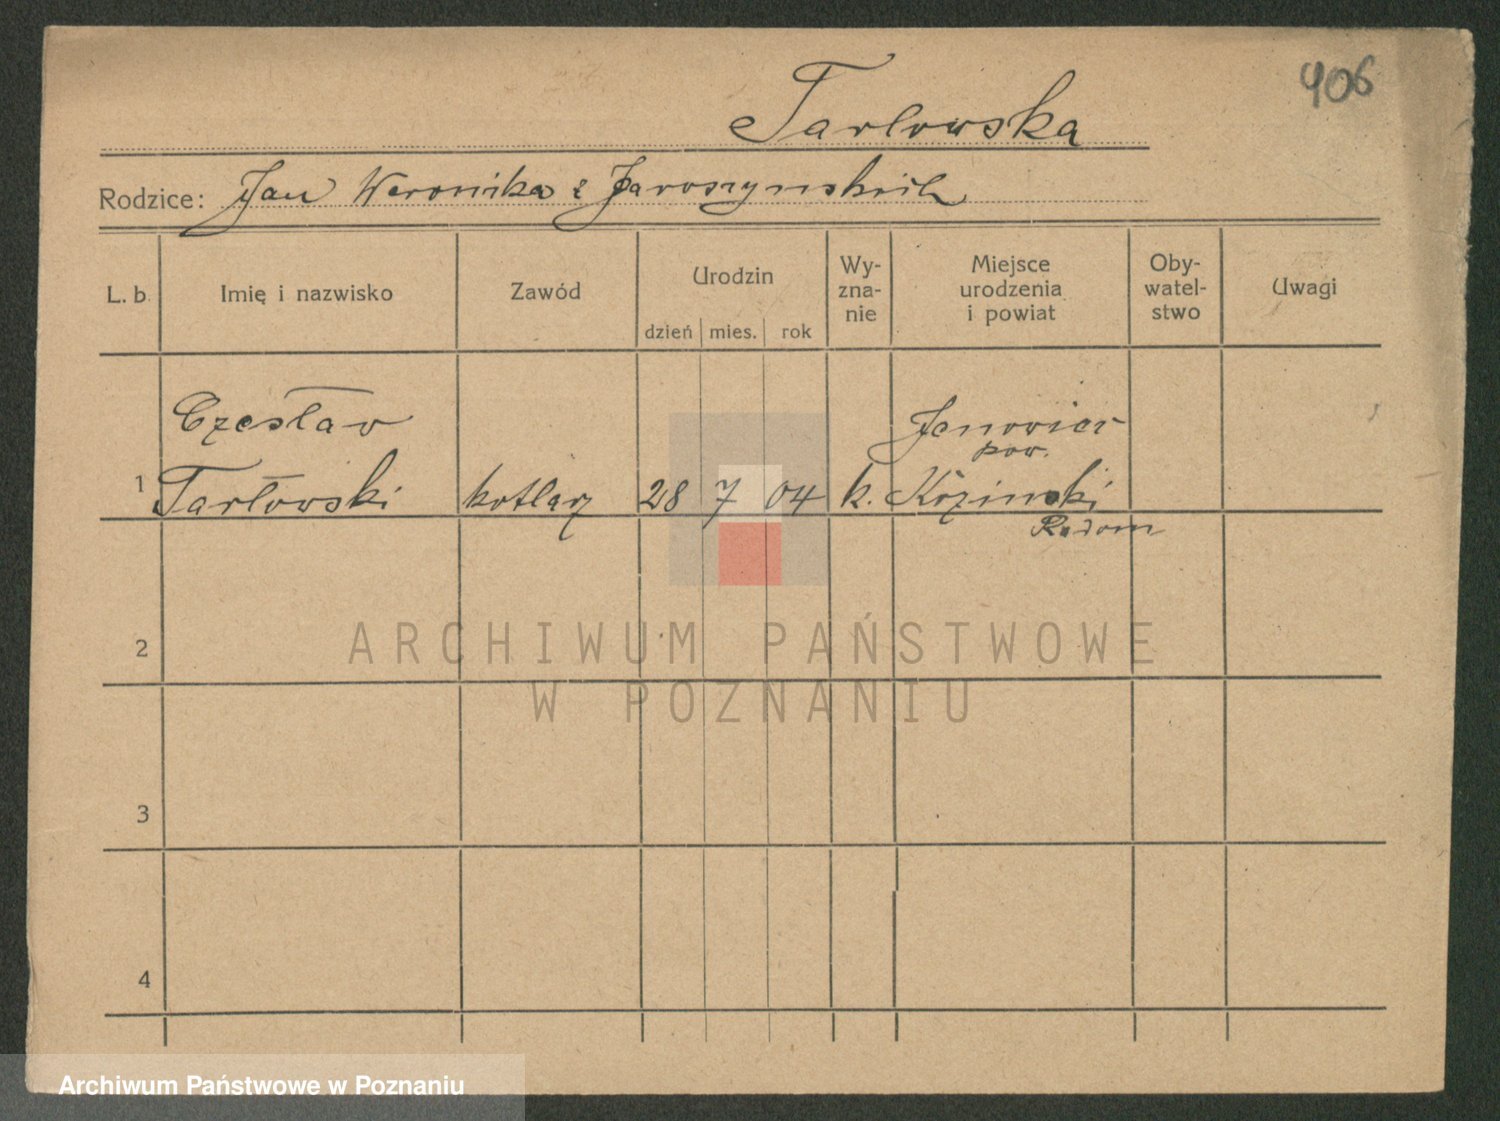 406
Tarlowska
Rodzice: Jan Weronika z Jaroszynskich
L. b. Imię i nazwisko Zawód Urodzin Wy- Miejsce Oby- Uwagi
zna- urodzenia watel-
nie i powiat stwo
dzień mies. rok
Czesław Janowiec
pow.
1 Tarłowski kotlarz 28 7 04 k. Kozinski
Radom
2
3
4
ARCHIWUM PAŃSTWOWE
W POZNANIU
Archiwum Państwowe w Poznaniu